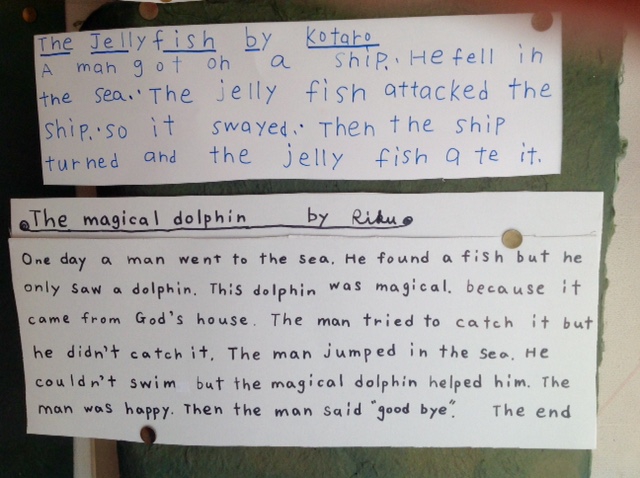 The Jellyfish by Kotaro
A man got on a ship. He fell in
the sea. The jelly fish attacked the
ship. so it swayed. Then the ship
turned and the jelly fish ate it.
The magical dolphin by Riku
One day a man went to the sea. He found a fish but he
only saw a dolphin. This dolphin was magical. because it
came from God's house. The man tried to catch it but
he didn't catch it. The man jumped in the sea. He
couldn't swim but the magical dolphin helped him. The
man was happy. Then the man said "good bye". The end